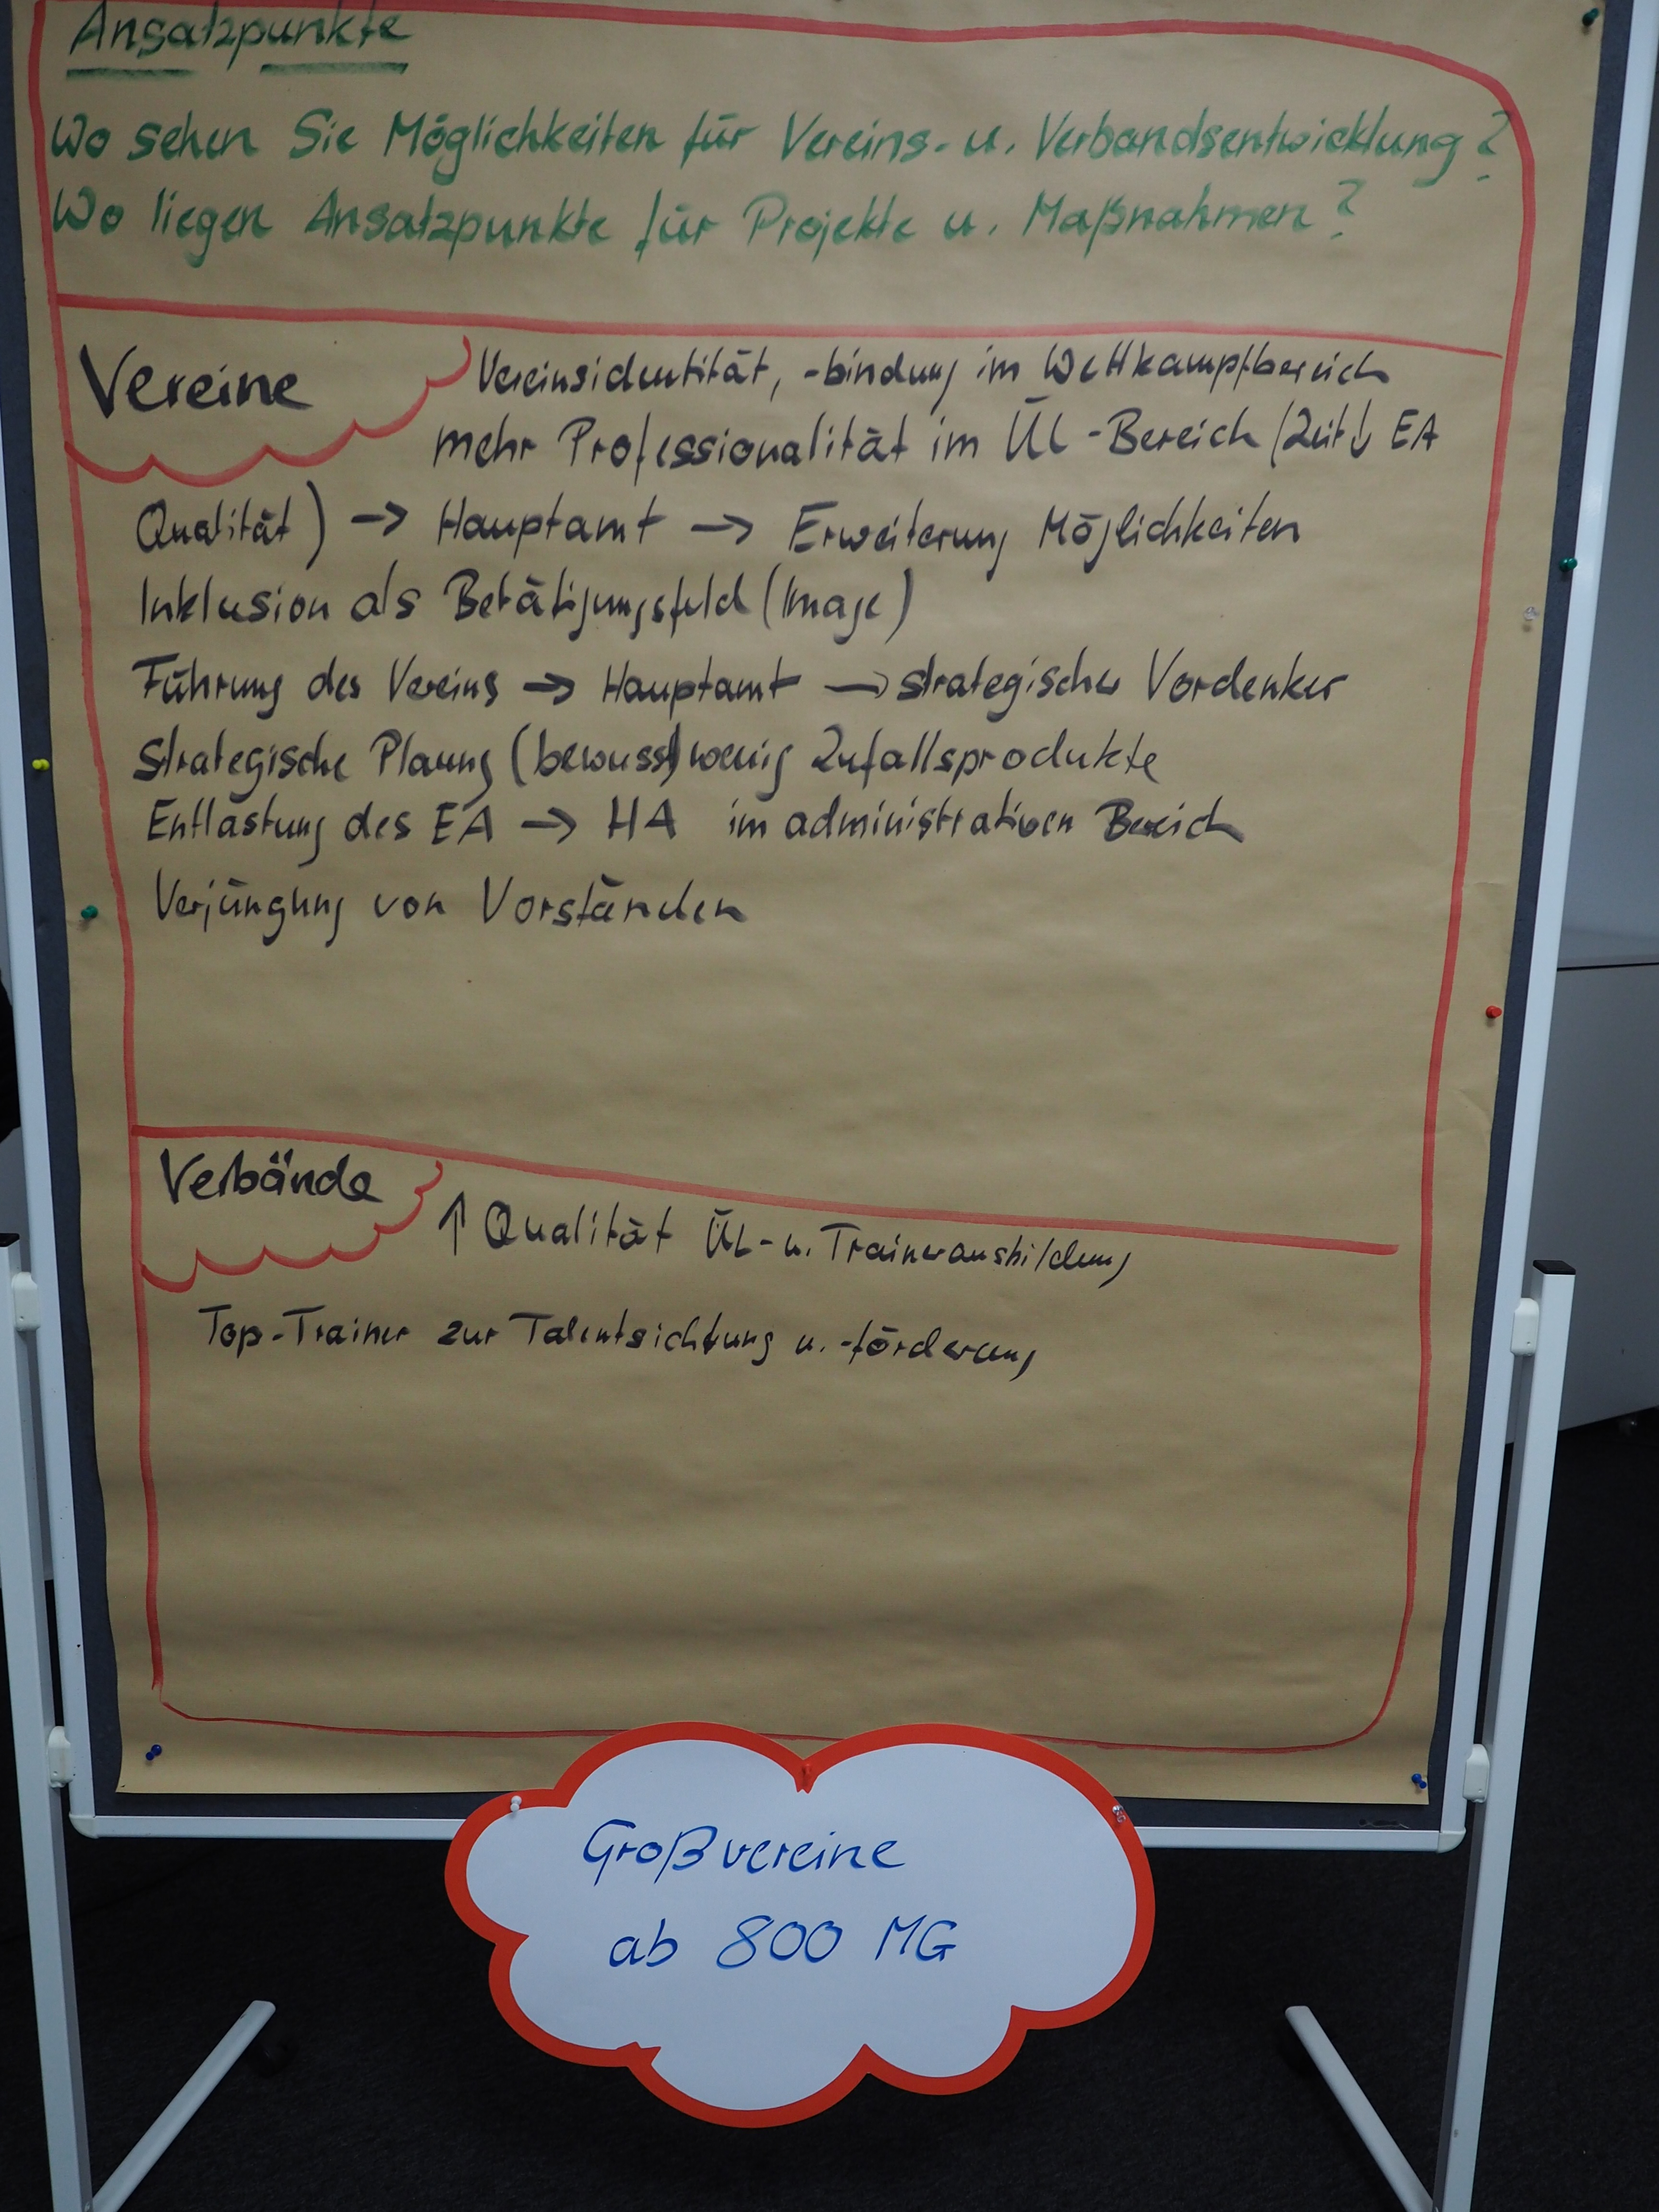 Ansatzpunkte
Wo sehen Sie Möglichkeiten für Vereins- u. Verbandsentwicklung?
Wo liegen Ansatzpunkte für Projekte u. Maßnahmen?
Vereine
Vereinsidentität, -bindung im Wettkampfbereich
mehr Professionalität im ÜL-Bereich (Zeit↓ EA
Qualität) → Hauptamt → Erweiterung Möglichkeiten
Inklusion als Betätigungsfeld (Image)
Führung des Vereins → Hauptamt → strategischer Vordenker
Strategische Planung (bewusst) wenig Zufallsprodukte
Entlastung des EA → HA im administrativen Bereich
Verjüngung von Vorständen
Verbände
↑ Qualität ÜL- u. Trainerausbildung
Top-Trainer zur Talentsichtung u. -förderung
Großvereine
ab 800 MG